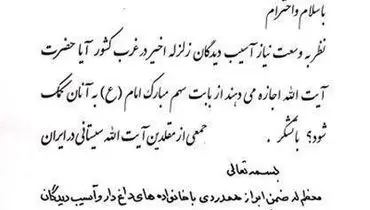 باسلام واحترام
نظربه وسعت نیاز آسیب دیدگان زلزله اخیر درغرب کشور آیا حضرت
آیت الله اجازه می دهند از بابت سهم مبارک امام (ع) به آنان کمک
شود؟ باتشکر . جمعی از مقلدین آیت الله سیستانی در ایران
بسمه تعالی
معظم له ضمن ابراز همدردی با خانواده های داغ دار و آسیب دیدگان